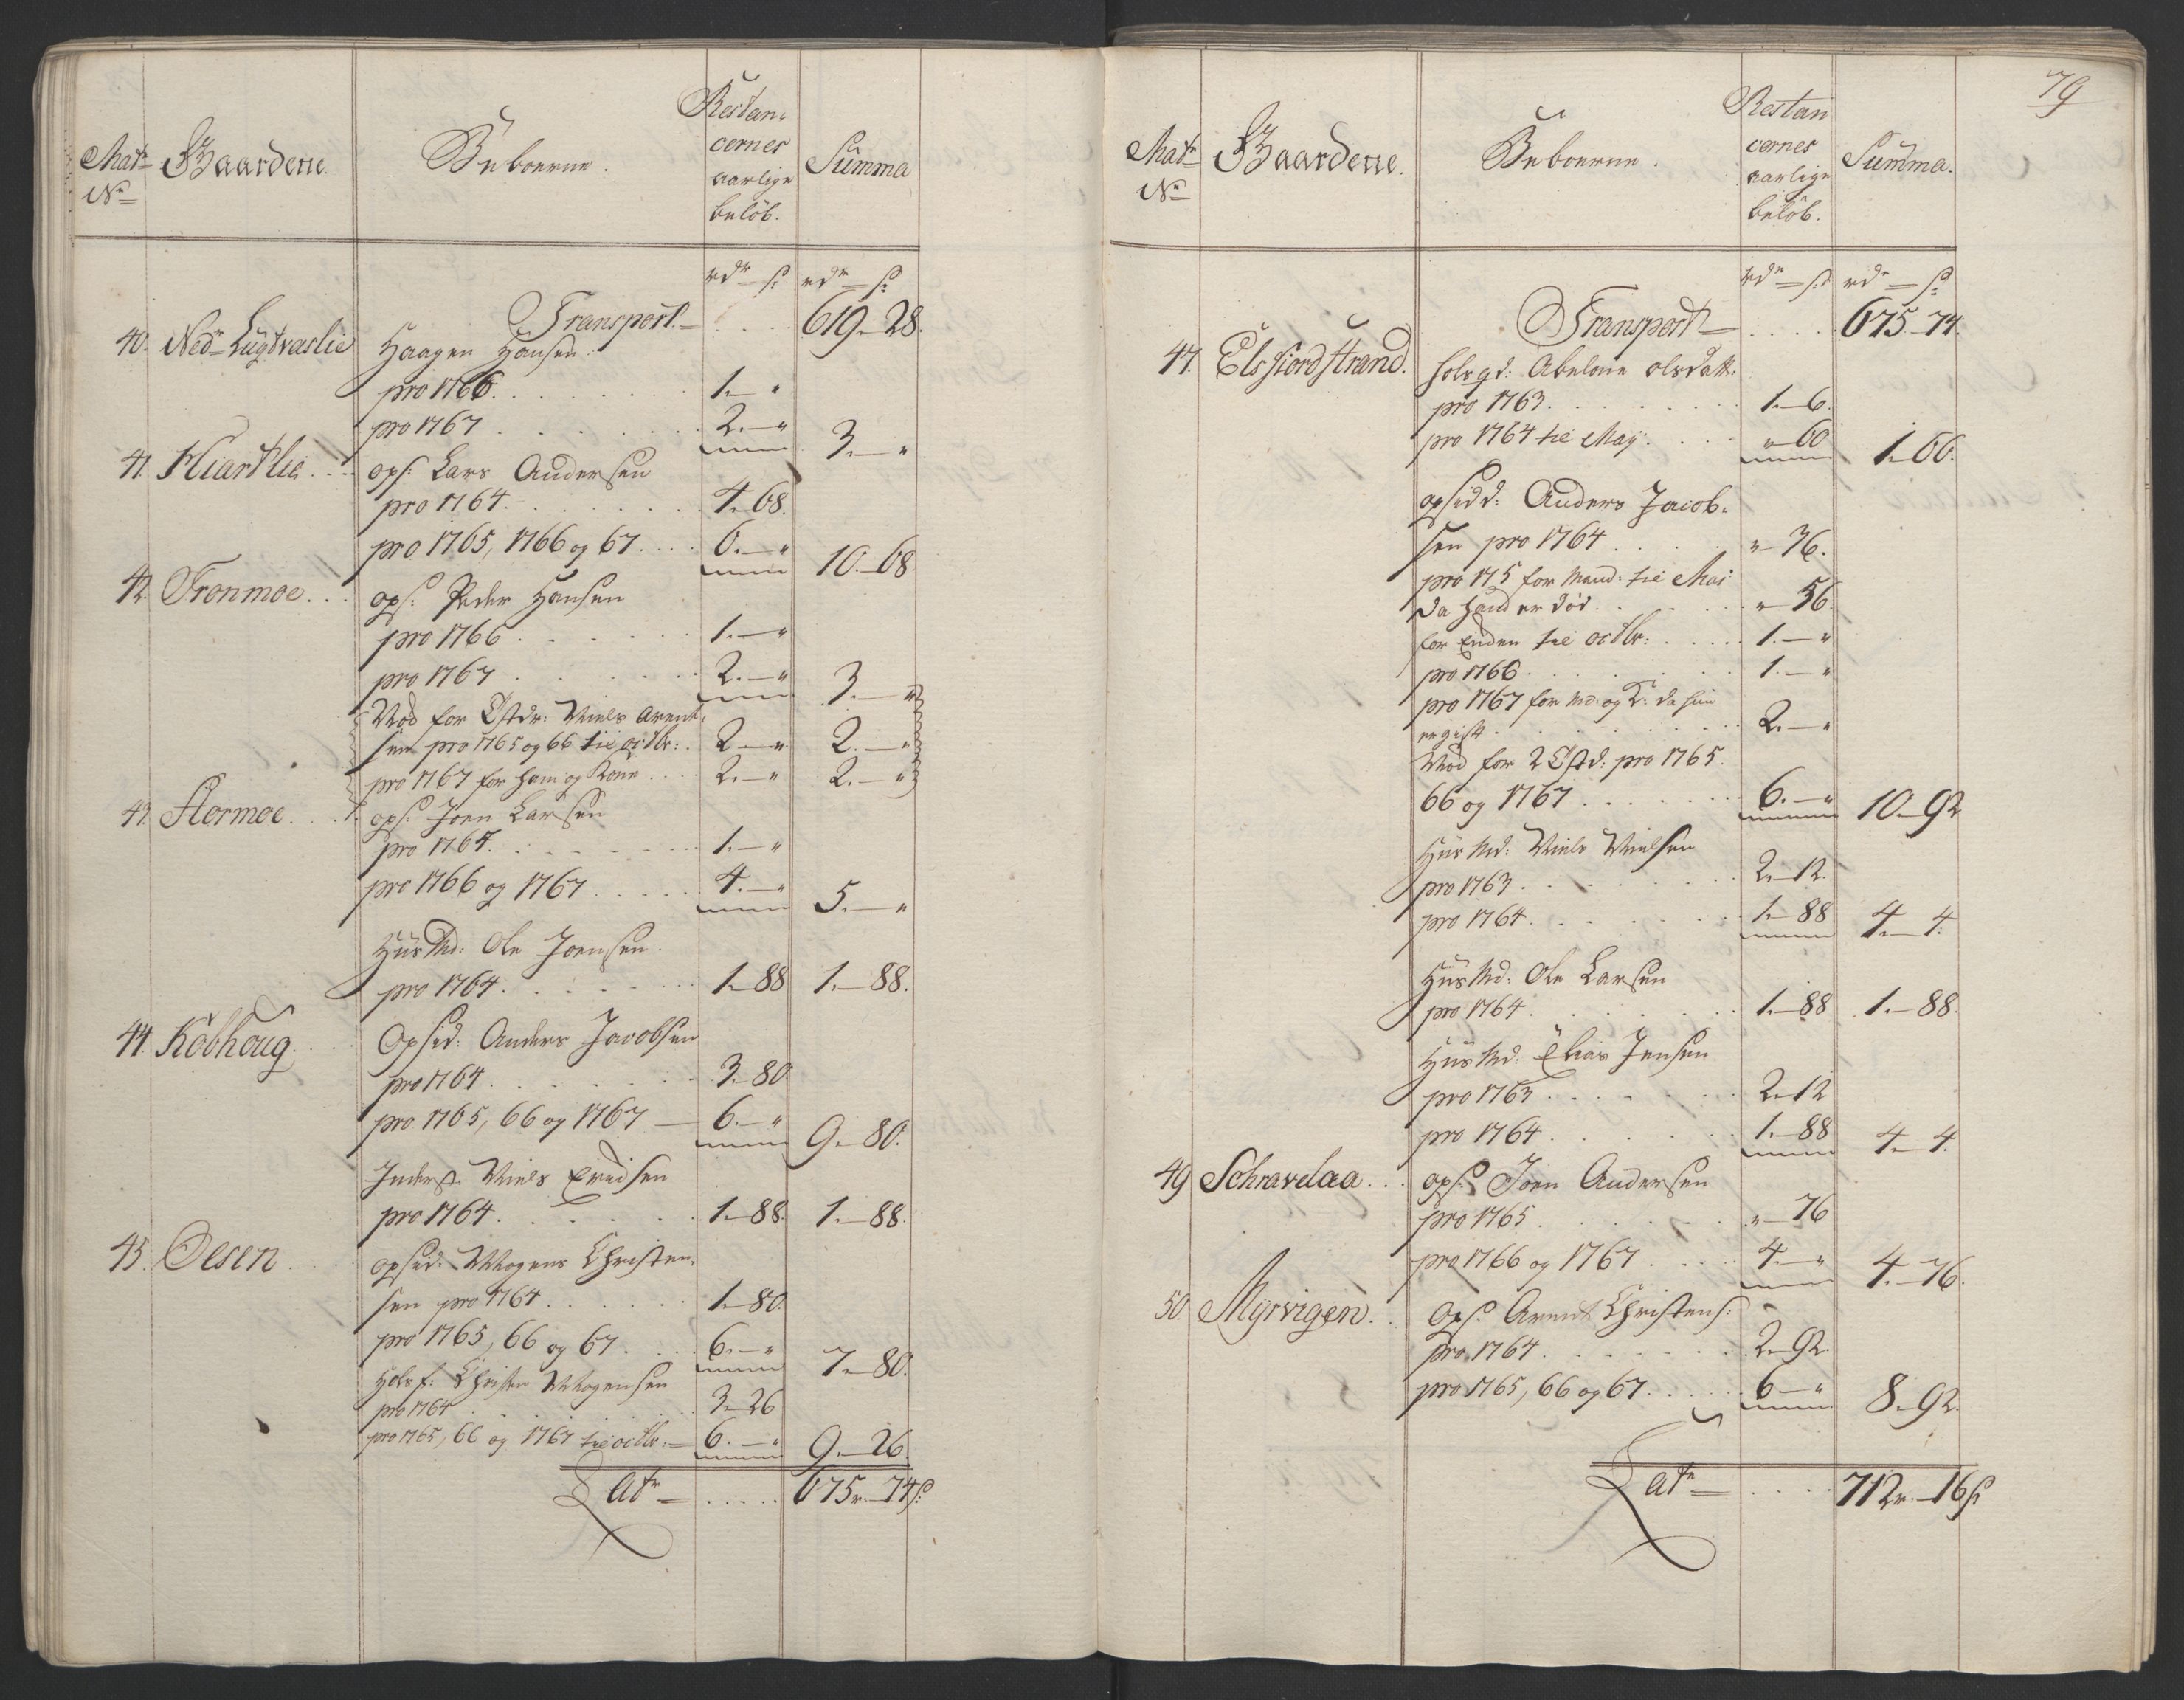 Matr No Gaardene. Beboerne. Restan-
cernes
aarlige
beløb. Summa
rdr — s: rdr — s:
Transport — . . . . 619 — 28.
40. Nedr Lügtvaslie Haagen Hansen
pro 1766. . . . 1. — "
pro 1767 . . . 2. — " 3. — "
41. Hiartlie . . . ops: Lars Andersen
pro 1764. . . . 4. — 68.
pro 1765, 1766 og 67. . . . 6. — " 10. — 68
42. Tronmoe . . . ops: Peder Hansen
pro 1766 . . . 1. — "
pro 1767 . . . 2. — " 3. — "
Nod for Tstdr: Niels Arent-
sen pro 1765 og 66 til octbr: . 2 — " 2. — "
pro 1767 for ham og Kone . . . 2. — " 2. — "
43. Stormoe . . . ops: Joen Larsen
pro 1764. . . . 1. — "
pro 1766 og 1767 . . . 4. — " 5. — "
Huusmd: Ole Joensen.
pro 1764. . . . 1 — 88 1. — 88.
44. Kobhoug. . . . Opsid: Anders Jacobsen
pro 1764. . . . 3. — 80
pro 1765, 66 og 1767 — 6. — " 9. — 80.
Inderst. Niels Eridsen
pro 1764. . . . 1. — 88. 1. — 88.
45. Olsen . . . opsid: Mogens Christen-
sen pro 1764. . . . 1. — 80.
pro 1765, 66 og 67. . . . 6. — " 7. — 80.
Holsf: Christen Mogensen
pro 1764 . . . 3 — 26
pro 1765, 66 og 1767 til octbr: — 6. — " 9. — 26
Latr — . . . . 675r. — 74s:
79
Matr No Gaardene. Beboerne. Restan
cernes
aarlige
beløb. Summa.
rdr — s: rdr — s:
Transport — . . . . 675 — 74.
47. Elsfiordstrand. holsgd: Abelone olsdatt:
pro 1763. . . . 1. — 6.
pro 1764 til Maj. . . . " 60 1. 66.
opsidd: Anders Jacob-
sen pro 1764 . . . " — 36.
pro 175 for Mand: til Mai
da hand er død. . . . " — 56
for Enden til octbr: . . . 1. — "
pro 1766. . . . 1. — "
pro 1767 for Md: og K: da hun
er gift . . . 2. — "
Nod for 2 Tstd: pro 1765.
66 og 1767 . . . 6. — " 10. — 92
Huusmd: Niels Nielsen
pro 1763. . . . 2. — 12.
pro 1764. . . . 1. — 88 4. — 4.
Huusmd: Ole Larsen
pro 1764. . . . 1. — 88 1. — 88.
Huusmd: Elias Jensen
pro 1763. . . . 2. — 12
pro 1764. . . . 1. — 88 4. — 4.
49 Schravelaa . . . ops: Joen Andersen
pro 1765. . . . " — 76
pro 1766 og 1767. . . . 4. — " 4. — 76.
50. Myrvigen . . . Ops: Arent Christens:
pro. 1764. . . . 2. — 92.
pro 1765, 66 og 67. . . . 6 — " 8. — 92.
Latr — . . . . 712r. — 16s